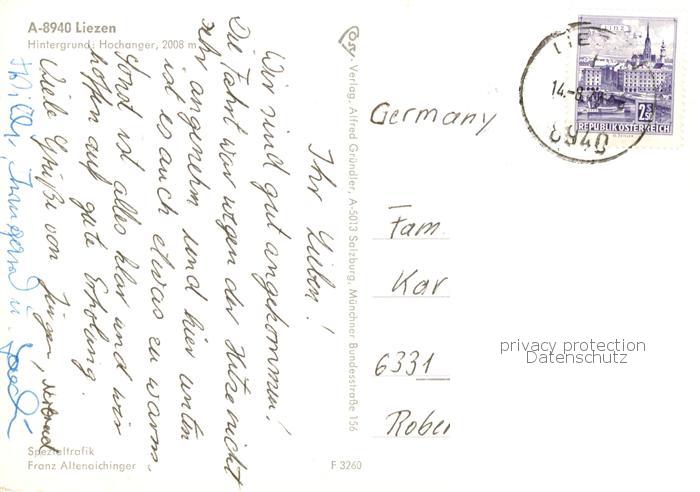 A-8940 Liezen
Hintergrund: Hochanger, 2008 m
Ihr Lieben!
Wir sind gut angekommen!
Die Fahrt war wegen der Hitze nicht
sehr angenehm und hier unten
ist es auch etwas zu warm.
Sonst ist alles klar und wir
hoffen auf gute Erholung.
Viele Grüße von Jürgen,
Willy, Irmgard u.
Verlag: Alfred Gründler, A-5013 Salzburg, Münchner Bundesstraße 156
Spezialtrafik
Franz Altenaichinger
F 3260
LINZ
2S
REPUBLIK ÖSTERREICH
LIE
14.-8.
8940
Germany
Fam
Kar
6331
Rober
privacy protection
Datenschutz